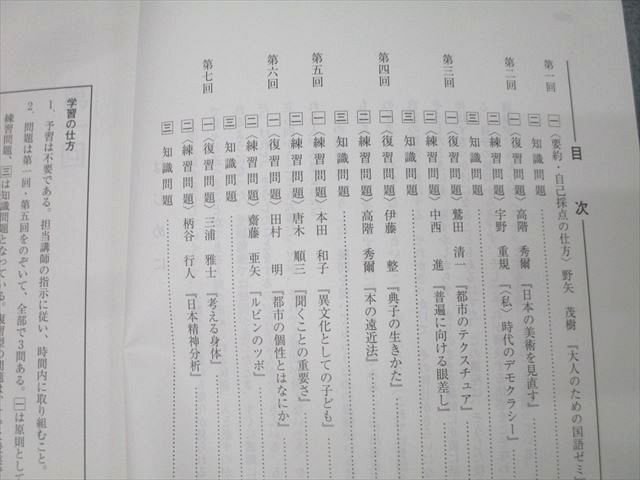 目次
第一回 一〈要約・自己採点の仕方〉 野矢 茂樹 『大人のための国語ゼミ』
二 知識問題
第二回 一〈復習問題〉 高階 秀爾 『日本の美術を見直す』
二〈練習問題〉 宇野 重規 『〈私〉時代のデモクラシー』
三 知識問題
第三回 一〈復習問題〉 鷲田 清一 『都市のテクスチュア』
二〈練習問題〉 中西 進 『普遍に向ける眼差し』
三 知識問題
第四回 一〈復習問題〉 伊藤 整 『典子の生きかた』
二〈練習問題〉 高階 秀爾 『本の遠近法』
三 知識問題
第五回 一〈練習問題〉 本田 和子 『異文化としての子ども』
二〈練習問題〉 唐木 順三 『聞くことの重要さ』
第六回 一〈復習問題〉 田村 明 『都市の個性とはなにか』
二〈練習問題〉 齋藤 亜矢 『ルビンのツボ』
三 知識問題
第七回 一〈復習問題〉 三浦 雅士 『考える身体』
二〈練習問題〉 柄谷 行人 『日本精神分析』
三 知識問題
学習の仕方
1. 予習は不要である。担当講師の指示に従い、時間内に取り組むこと。
2. 問題は第一回・第五回をのぞいて、全部で3問ある。一は原則として
練習問題、三は知識問題となっている。復習型の問題は